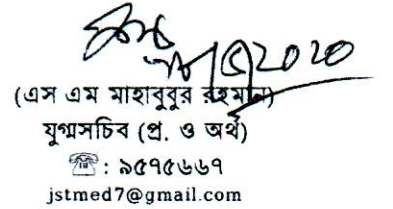 (এস এম মাহাবুবুর রহমান)
যুগ্মসচিব (প্র. ও অর্থ)
☎ : ৯৫৭৫৬৬৭
jstmed7@gmail.com